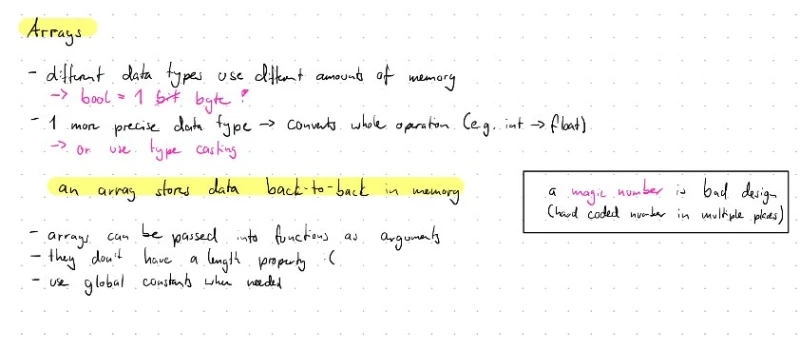 Arrays
- different data types use different amounts of memory
-> bool = 1 bit byte !
- 1 more precise data type -> converts whole operation (e.g. int -> float)
-> or use type casting
an array stores data back-to-back in memory
a magic number is bad design
(hard coded number in multiple places)
- arrays can be passed into functions as arguments
- they don't have a length property :(
- use global constants when needed